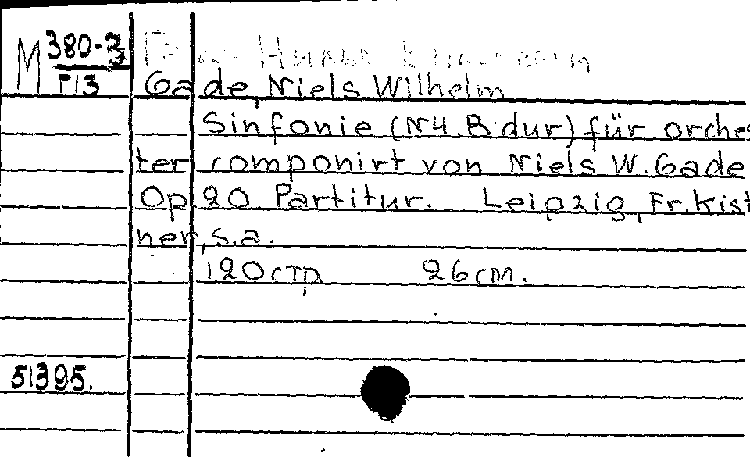 M 380-3
Г13
Gade, Niels Wilhelm
Sinfonie (N4 B dur) für orches
ter componirt von Niels W. Gade
Op 20 Partitur. Leipzig, Fr. Kist
ner, s.a.
120 стр 26 см.
51395.